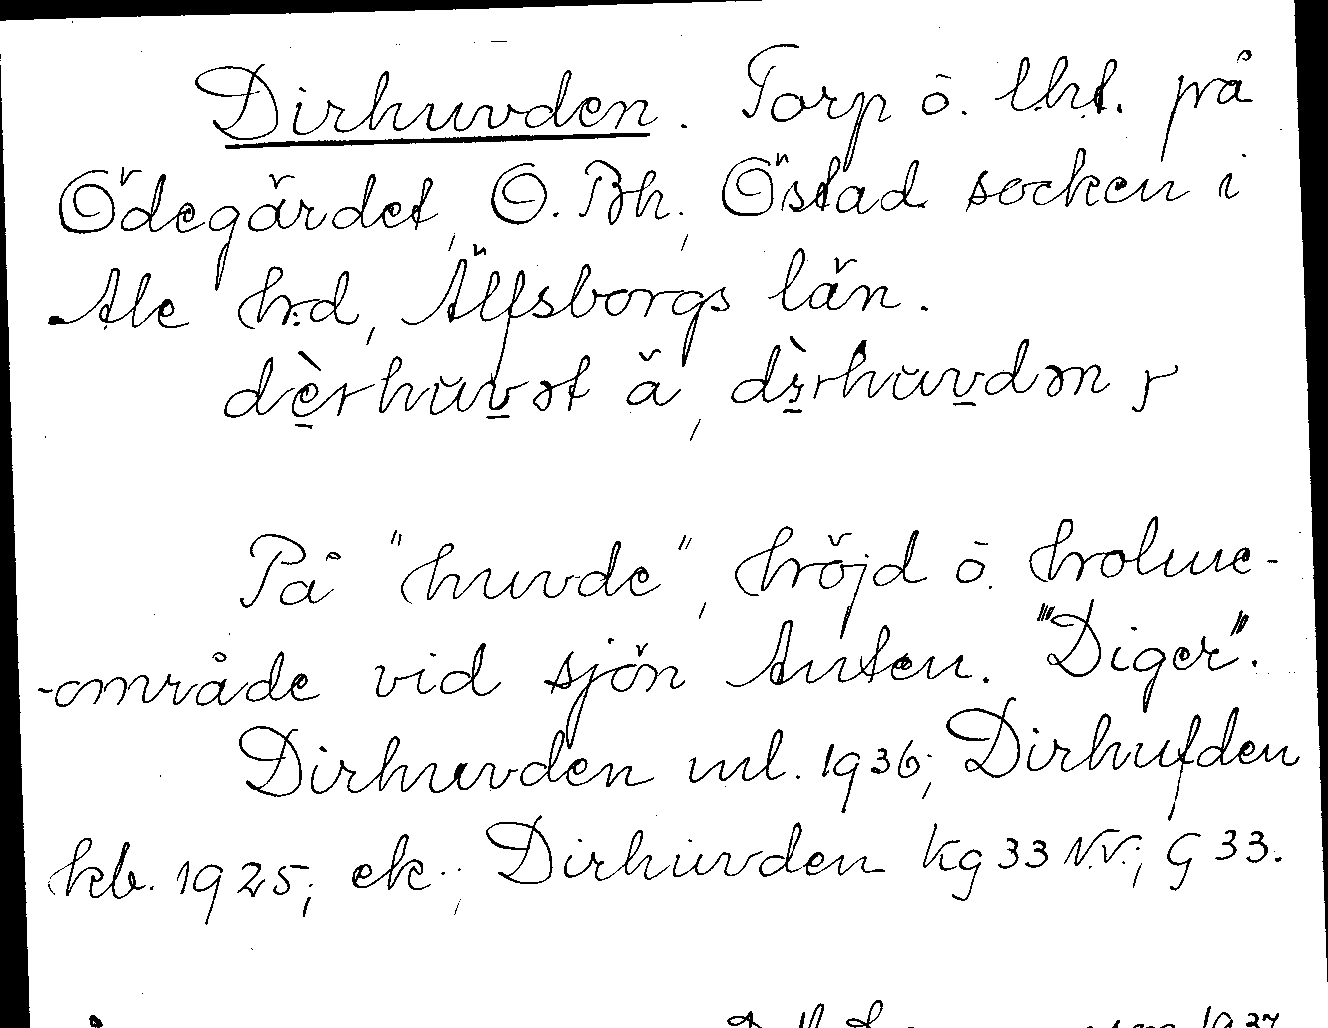 Dirhuvden. Torp o. lht. på
Ödegärdet, O. Bh., Östad socken i
Ale hd, Älfsborgs län.
dèrhuvət ä, dìrhuvdən r
På "huvde", höjd o. holme-
-område vid sjön Anten. "Diger".
Dirhuvden ml. 1936; Dirhufden
kb. 1925; ek.; Dirhuvden kg 33 N.V.; G 33.
1937